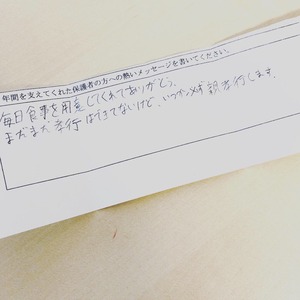 年間を支えてくれた保護者の方への熱いメッセージを書いてください。
毎日食事を用意してくれてありがとう。
まだまだ孝行はできてないけど、いつか必ず親孝行します。